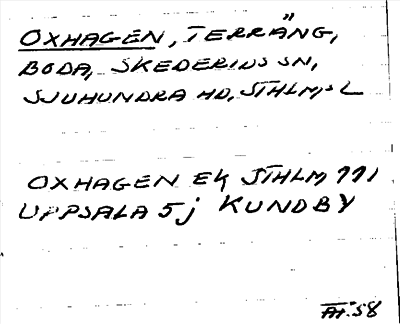 OXHAGEN, TERRÄNG,
BODA, SKEDERIDS SN,
SJUHUNDRA HD, STHLMS L
OXHAGEN EK STHLM 771
UPPSALA 5j KUNDBY
AH. 58